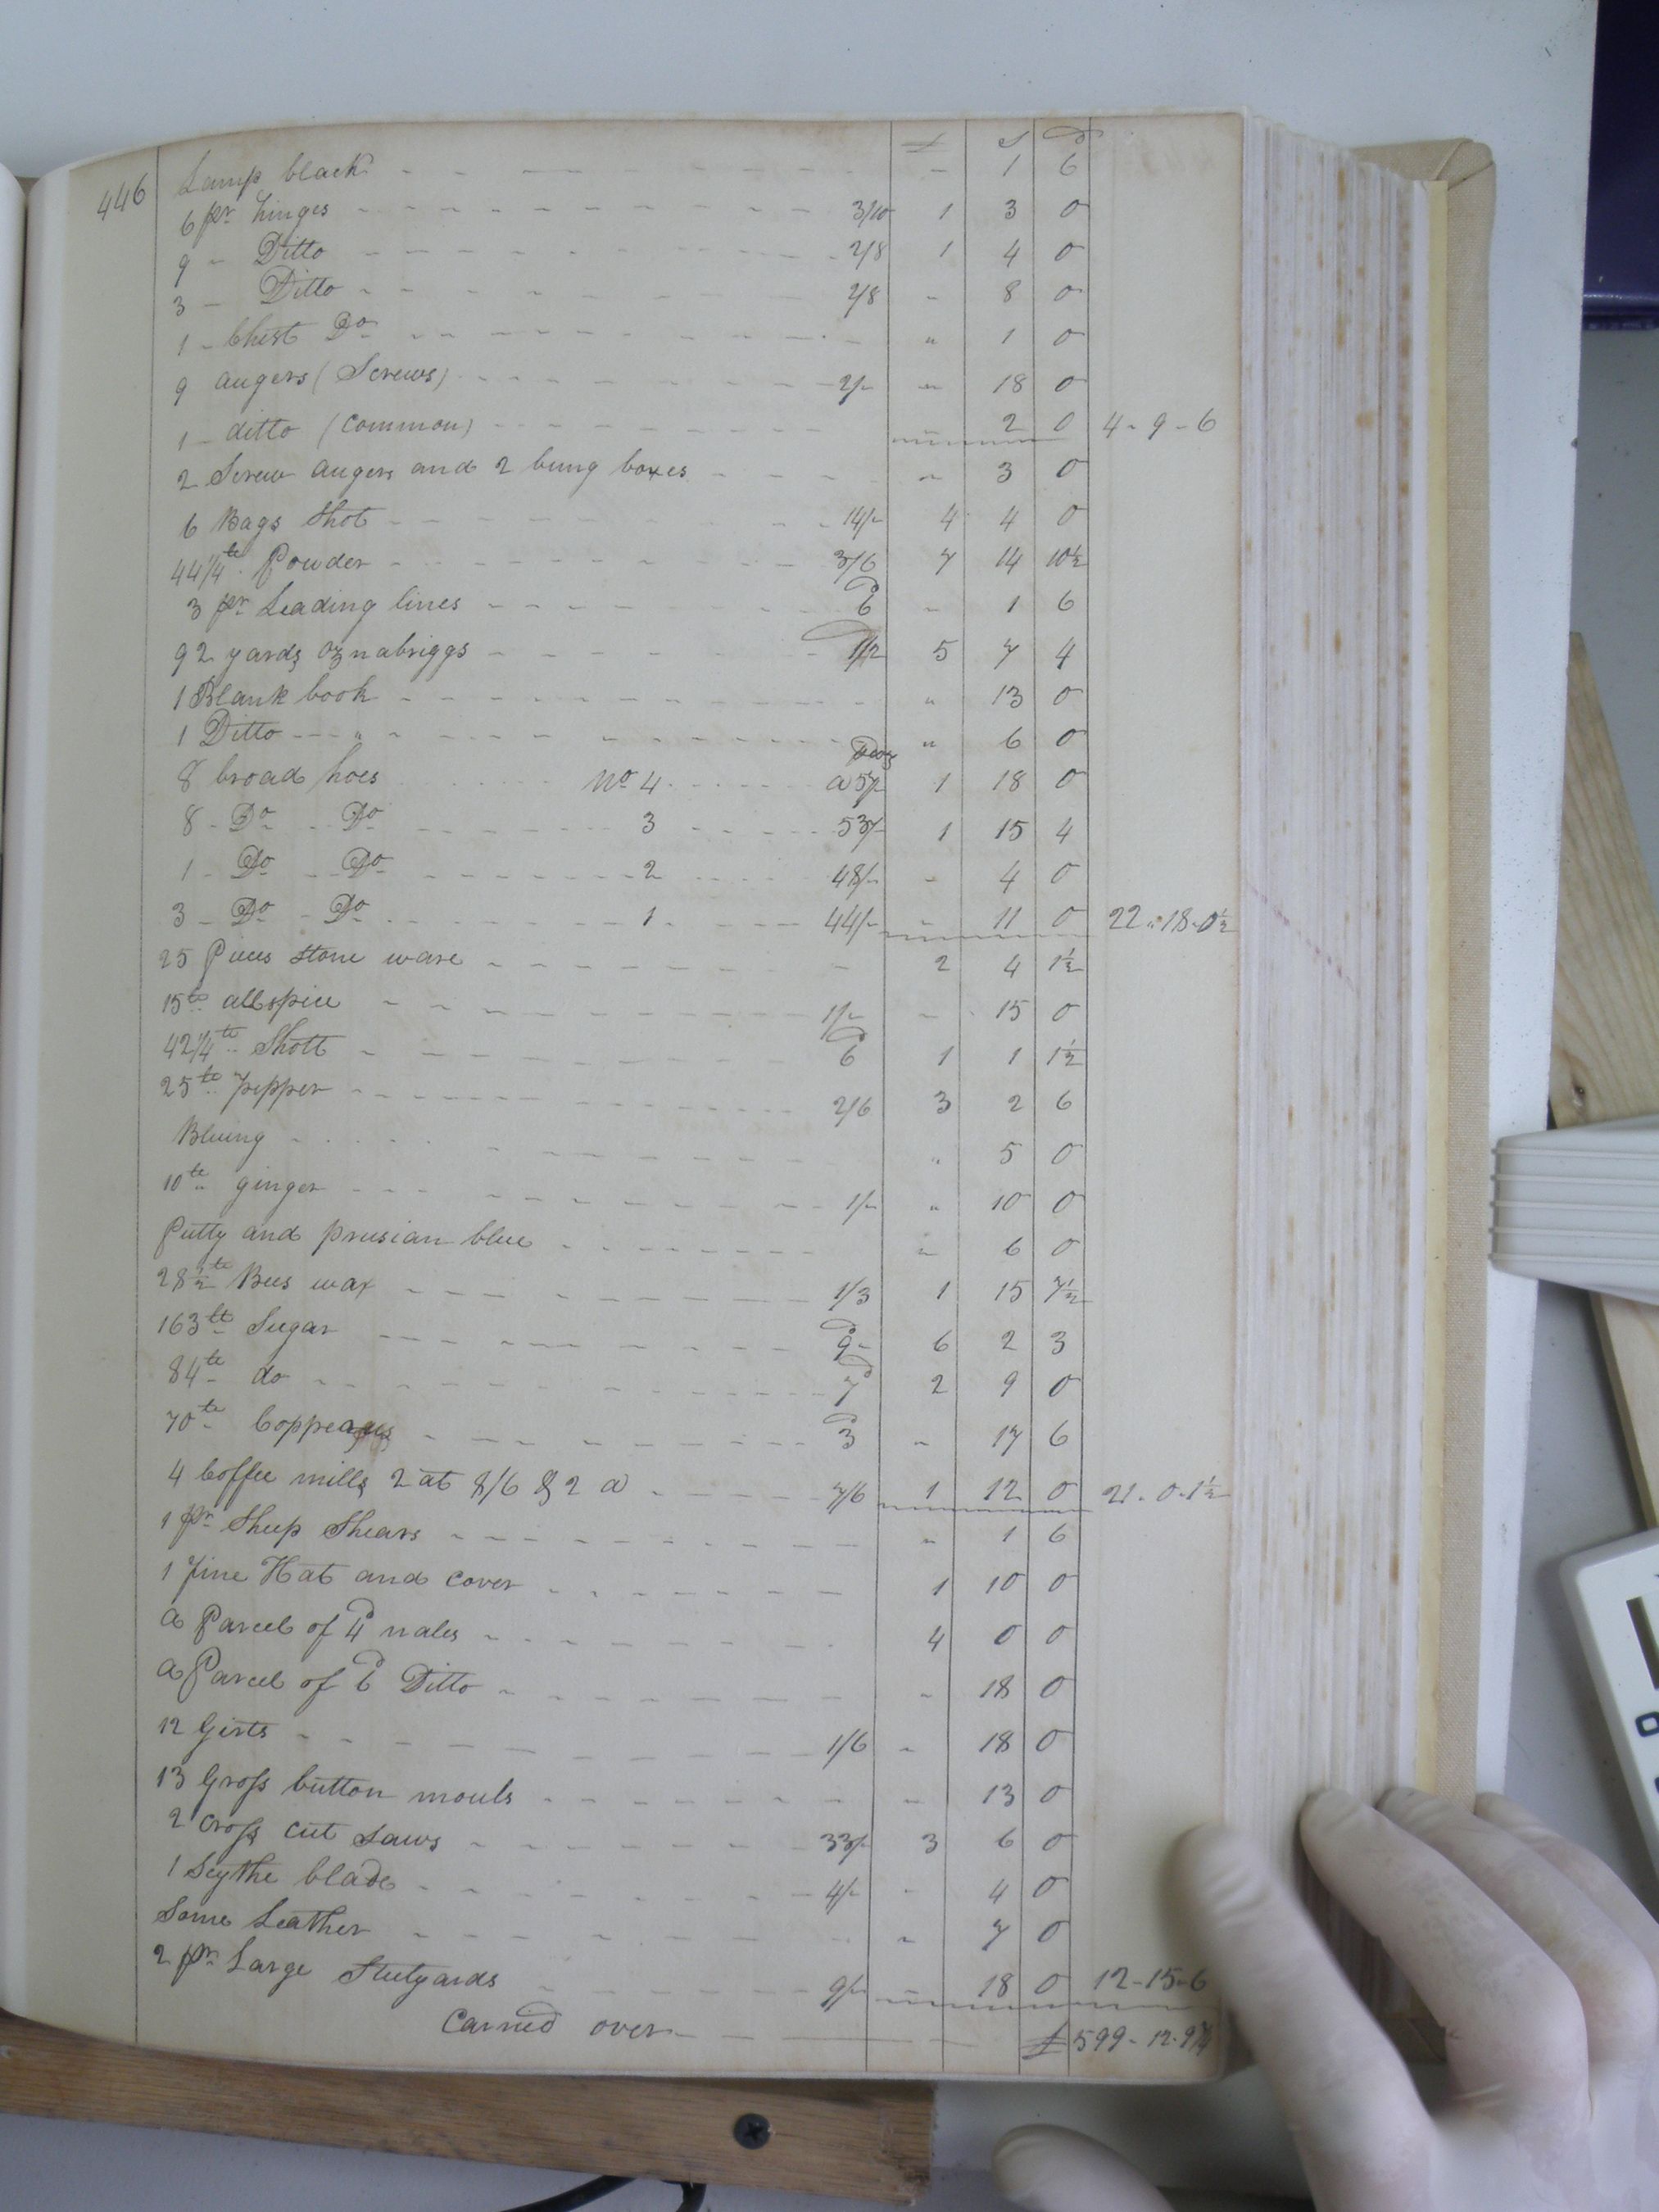 £ s d
446 Lamp black - 1 6
6 pr hinges 3/10 1 3 0
9 - Ditto 2/8 1 4 0
3 - Ditto 2/8 - 8 0
1 - Chest Do " 1 0
9 augers (Screws) 2/- - 18 0
1 - ditto (common) - 2 0 4-9-6
2 Screw augers and 2 bung boxes - 3 0
6 Bags Shot 14/- 4 4 0
44 1/4 lb Powder 3/6 7 14 10½
3 pr Leading lines 6d - 1 6
92 yards oznabriggs 1/2 5 7 4
1 Blank book " 13 0
1 Ditto - " " 6 0
8 broad hoes No 4 a 57/- Doz 1 18 0
8 - Do - Do 3 53/- 1 15 4
1 - Do - Do 2 48/- - 4 0
3 - Do - Do 1 44/- - 11 0 22-18-0½
25 Pices stone ware 2 4 1½
15 lb allspice 1/- - 15 0
42 1/4 lb Shott 6d 1 1 1½
25 lb pepper 2/6 3 2 6
Bluing " 5 0
10 lb ginger 1/- " 10 0
Putty and prusian blue - 6 0
28½ lb Bees wax 1/3 1 15 7½
163 lb Sugar 9d 6 2 3
84 lb do 7d 2 9 0
70 lb Copperas 3d - 17 6
4 Coffee mills 2 at 8/6 & 2 a 7/6 1 12 0 21-0-1½
1 pr Sheep Shears " 1 6
1 fine Hat and cover 1 10 0
a Parcel of 4d nales 4 0 0
a Parcel of 6d Ditto - 18 0
12 Girts 1/6 - 18 0
13 Gross button mouls - 13 0
2 cross cut saws 33/- 3 6 0
1 Scythe blade 4/- - 4 0
Some Leather - 7 0
2 pr Large Steelyards 9/- - 18 0 12-15-6
Carried over £599-12-9¾